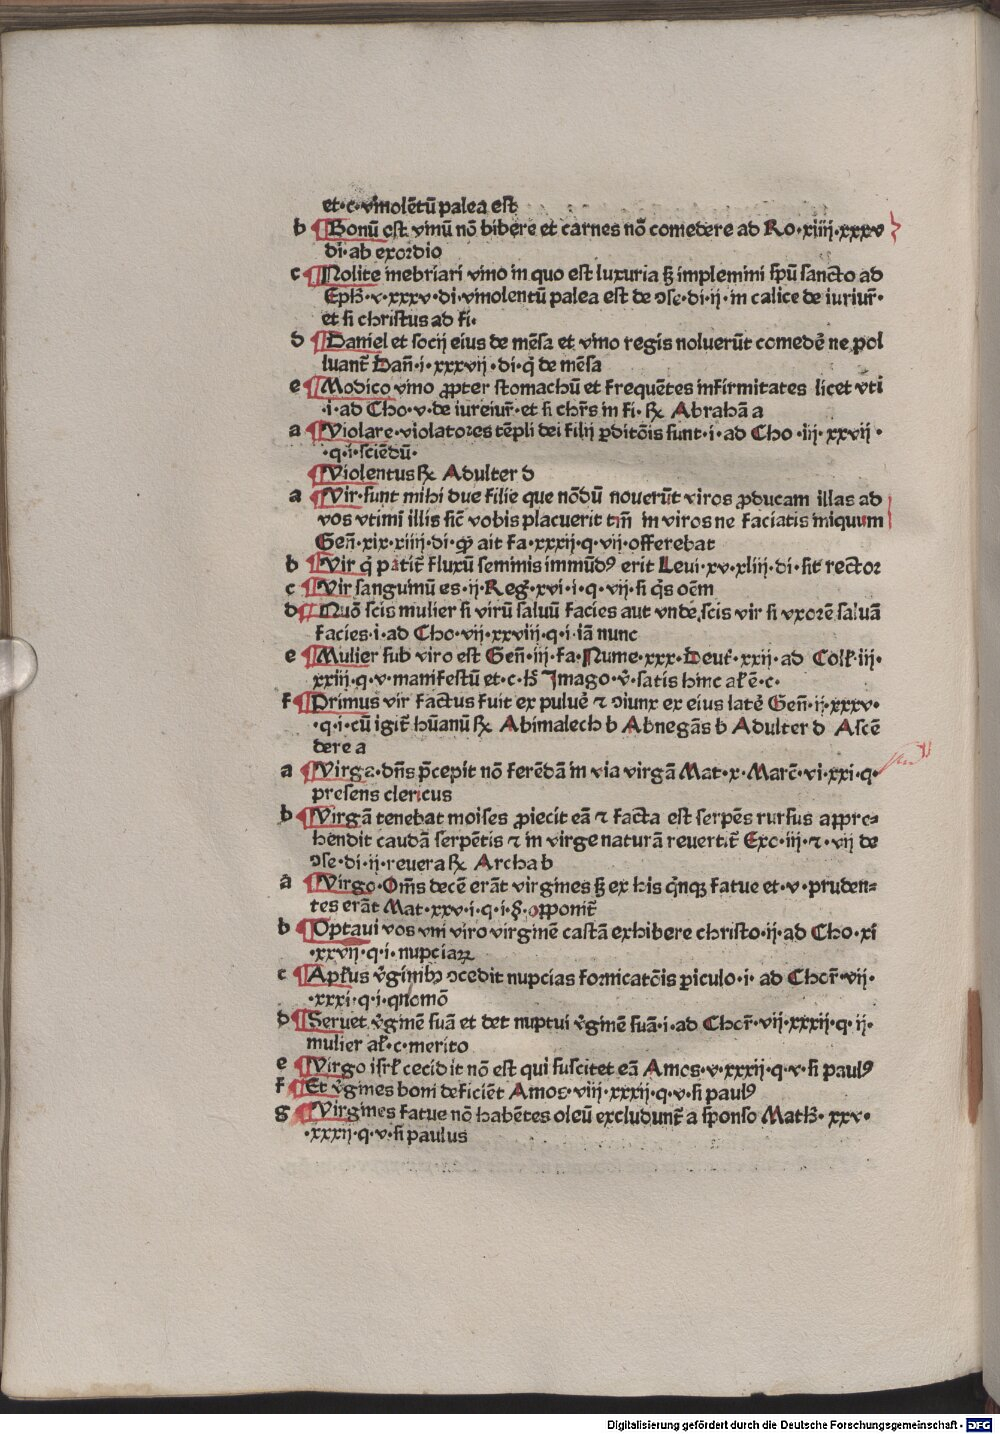 et·c·vinolētū palea est
b ¶Bonū est vinū nō bibere et carnes nō comedere ad Ro·xiiii·xxxv
di·ab exordio
c ¶Nolite inebriari vino in quo est luxuria sꝫ implemini spū sancto ad
Eph̄·v·xxxv·di·vinolentū palea est de ↄse·di·ii·in calice de iuriur̄·
et si christus ad fi·
d ¶Daniel et socij eius de mēsa et vino regis noluerūt comedē ne pol
luant̄ Dan̄·i·xxxvii·di·q̄ de mēsa
e ¶Modico vino ꝓpter stomachū et frequētes infirmitates licet vti
·i·ad Tho·v·de iureiur̄·et si chr̄s in fi·℞ Abrahā a
a ¶Violare·violatores tēpli dei filij ꝑditōis sunt·i·ad Cho·iii·xxvii·
·q·i·sciēdū·
¶Violentus ℞ Adulter d
a ¶Vir·sunt mihi due filie que nōdū nouerūt viros ꝓducam illas ad
vos vtimī illis sic̄ vobis placuerit tm̄ in viros ne faciatis iniquum
Gen̄·xix·xiiii·di·qꝫ ait fa·xxxii·q·vii·offerebat
b ¶Vir q̄ patit̄ fluxū seminis immūdꝰ erit Leui·xv·xliii·di·sit̄ rector
c ¶Vir sanguinū es·ii·Reḡ·xvi·i·q·vii·si q̄s oēm
d ¶Nūō scis mulier si virū saluū facies aut vnde scis vir si vxorē saluā
facies·i·ad Cho·vii·xxviii·q·i·iā nunc
e ¶Mulier sub viro est Gen̄·iii·fa·Nume·xxx·Deut̄·xxii·ad Coll̄·iii·
xxiii·q·v·manifestū et·c·h̄ Imago·v̄·satis hinc al̄ ē·c·
f ¶Primus vir factus fuit ex puluē ⁊ ↄiunx ex eius latē Gen̄·ii·xxxv·
·q·i·cū igit̄ hūanū ℞ Abimalech b Abnegās b Adulter d Ascē
dere a
a ¶Virga·dn̄s p̄cepit nō ferēdā in via virgā Mat·x·Marc̄·vi·xxi·q·
presens clericus
b ¶Virgā tenebat moises ꝓiecit eā ⁊ facta est serpēs rursus appre-
hendit caudā serpētis ⁊ in virge naturā reuertit̄ Exo·iii·⁊·vii de
ↄse·di·ii·reuera ℞ Archa b
a ¶Virgo·Om̄s decē erāt virgines sꝫ ex his q̄nqꝫ fatue et·v·pruden-
tes erāt Mat·xxv·i·q·i·§·opponit̄
b ¶Optaui vos vni viro virginē castā exhibere christo·ii·ad Cho·xi
·xxvii·q·i·nupciaꝝ
c ¶Apl̄us v̄ginibꝫ ↄcedit nupcias fornicatōis ꝑiculo·i·ad Chor̄·vii·
·xxxi·q·i·quomō
d ¶Seruet v̄ginē suā et det nuptui v̄ginē suā·i·ad Chor̄·vii·xxxii·q·ii·
mulier al̄·c·merito
e ¶Virgo isrl̄ cecidit nō est qui suscitet eā Amos·v·xxxii·q·v·si paulꝰ
f ¶Et v̄gines boni deficiēt Amos·viii·xxxii·q·v·si paulꝰ
g ¶Virgines fatue nō habētes oleū excludunt̄ a sponso Math̄·xxv·
·xxxii·q·v·si paulus
Digitalisierung gefördert durch die Deutsche Forschungsgemeinschaft - DFG